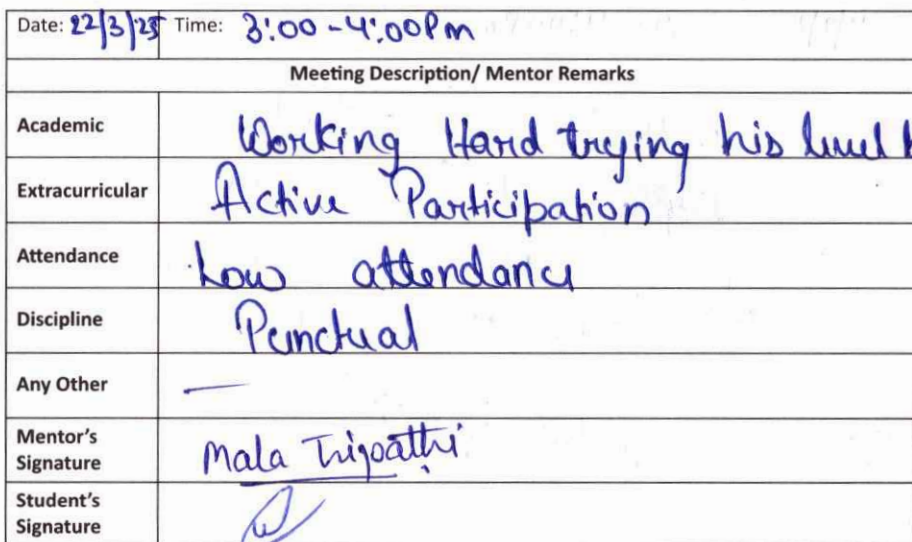 Date: 22/3/25 Time: 3:00-4:00Pm
Meeting Description/ Mentor Remarks
Academic Working Hard trying his level
Extracurricular Active Participation
Attendance Low attendance
Discipline Punctual
Any Other —
Mentor's Signature Mala Tripathi
Student's Signature